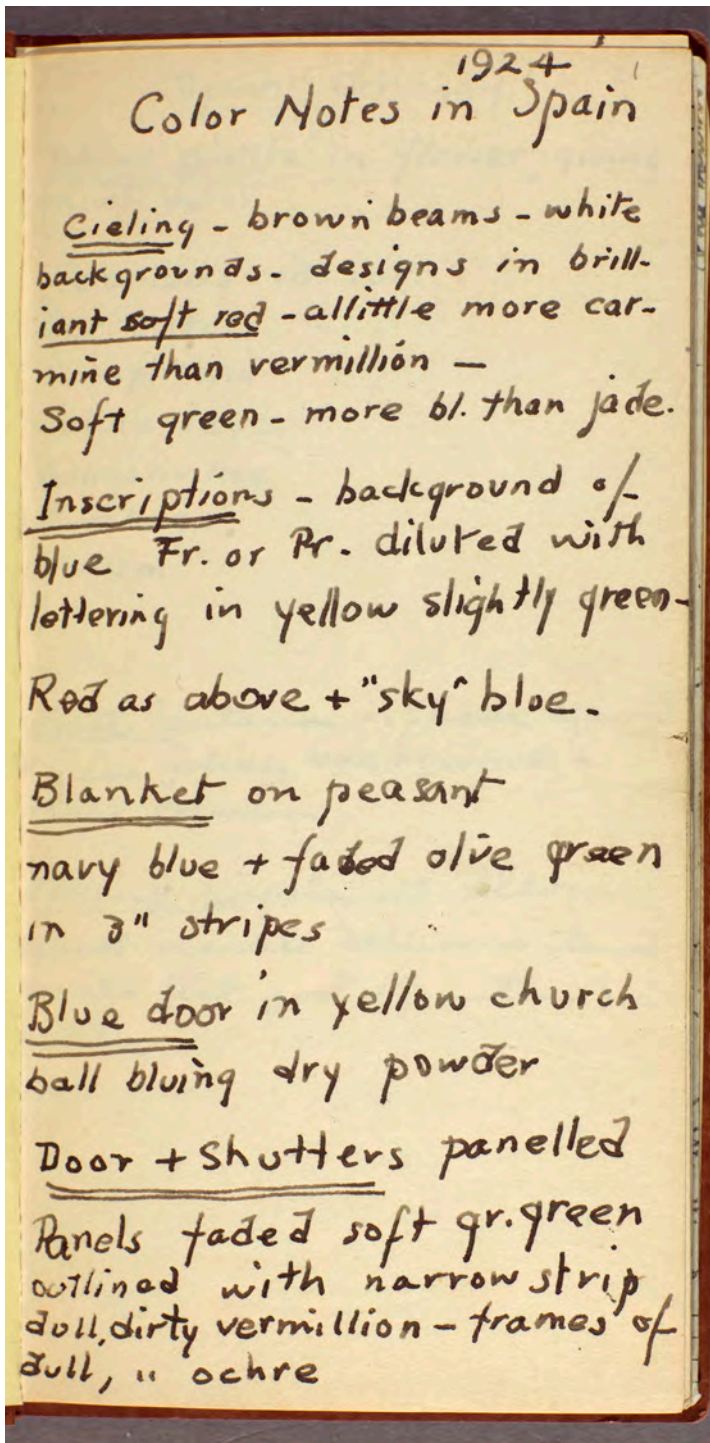 1924
Color Notes in Spain
Cieling - brown beams - white
backgrounds - designs in brill-
iant soft red - allittle more car-
mine than vermillion —
Soft green - more bl. than jade.
Inscriptions - background of
blue Fr. or Pr. diluted with
lettering in yellow slightly green -
Red as above + "sky" blue -
Blanket on peasant
navy blue + faded olive green
in 3" stripes
Blue door in yellow church
ball bluing dry powder
Door + Shutters panelled
Panels faded soft gr. green
outlined with narrow strip
dull, dirty vermillion - frames of
dull, " ochre